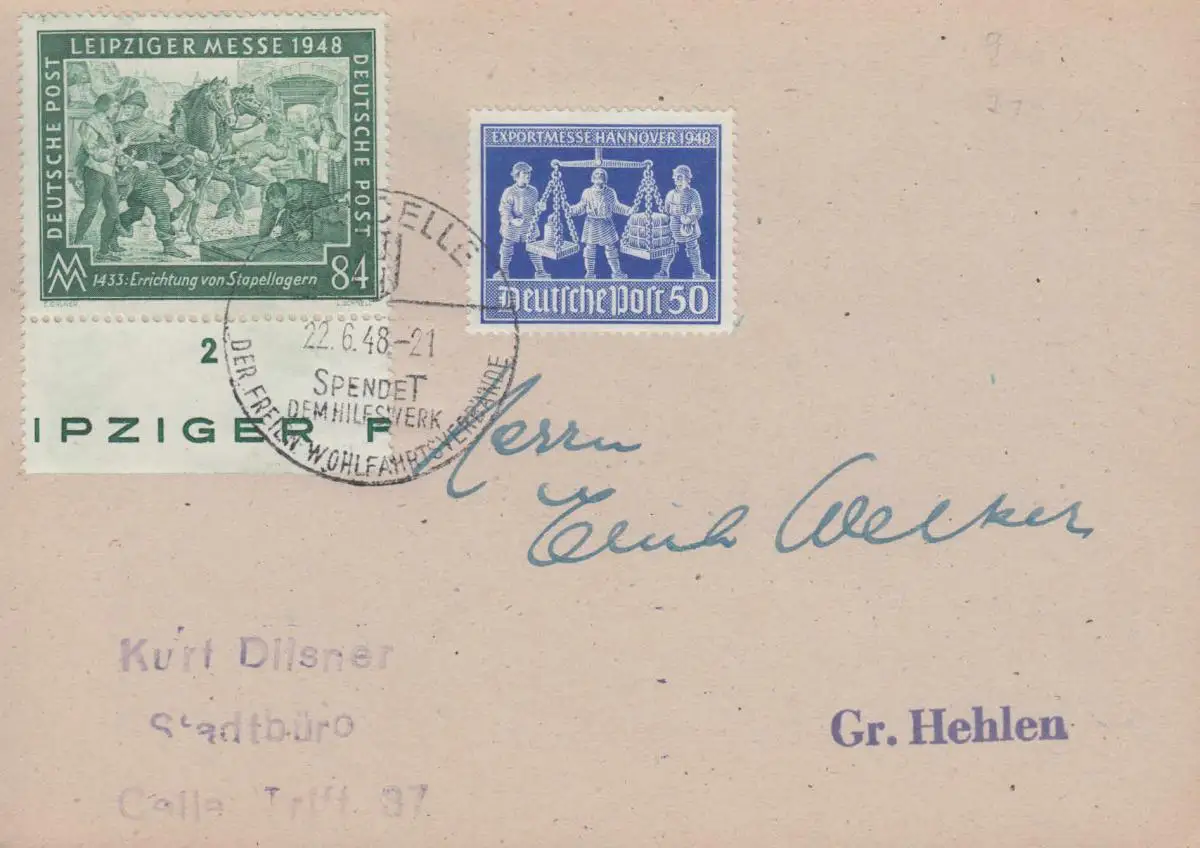 LEIPZIGER MESSE 1948
DEUTSCHE POST
DEUTSCHE POST
1433: Errichtung von Stapellagern 84
2
IPZIGER F
EXPORTMESSE HANNOVER 1948
Deutsche Post 50
CELLE
22.6.48.-21
SPENDET
DEM HILFSWERK
DER FREIEN WOHLFAHRTSVERBÄNDE
Herrn
Erich Welker
Kurt Dilsner
Stadtbüro
Celle, Trift 37
Gr. Hehlen